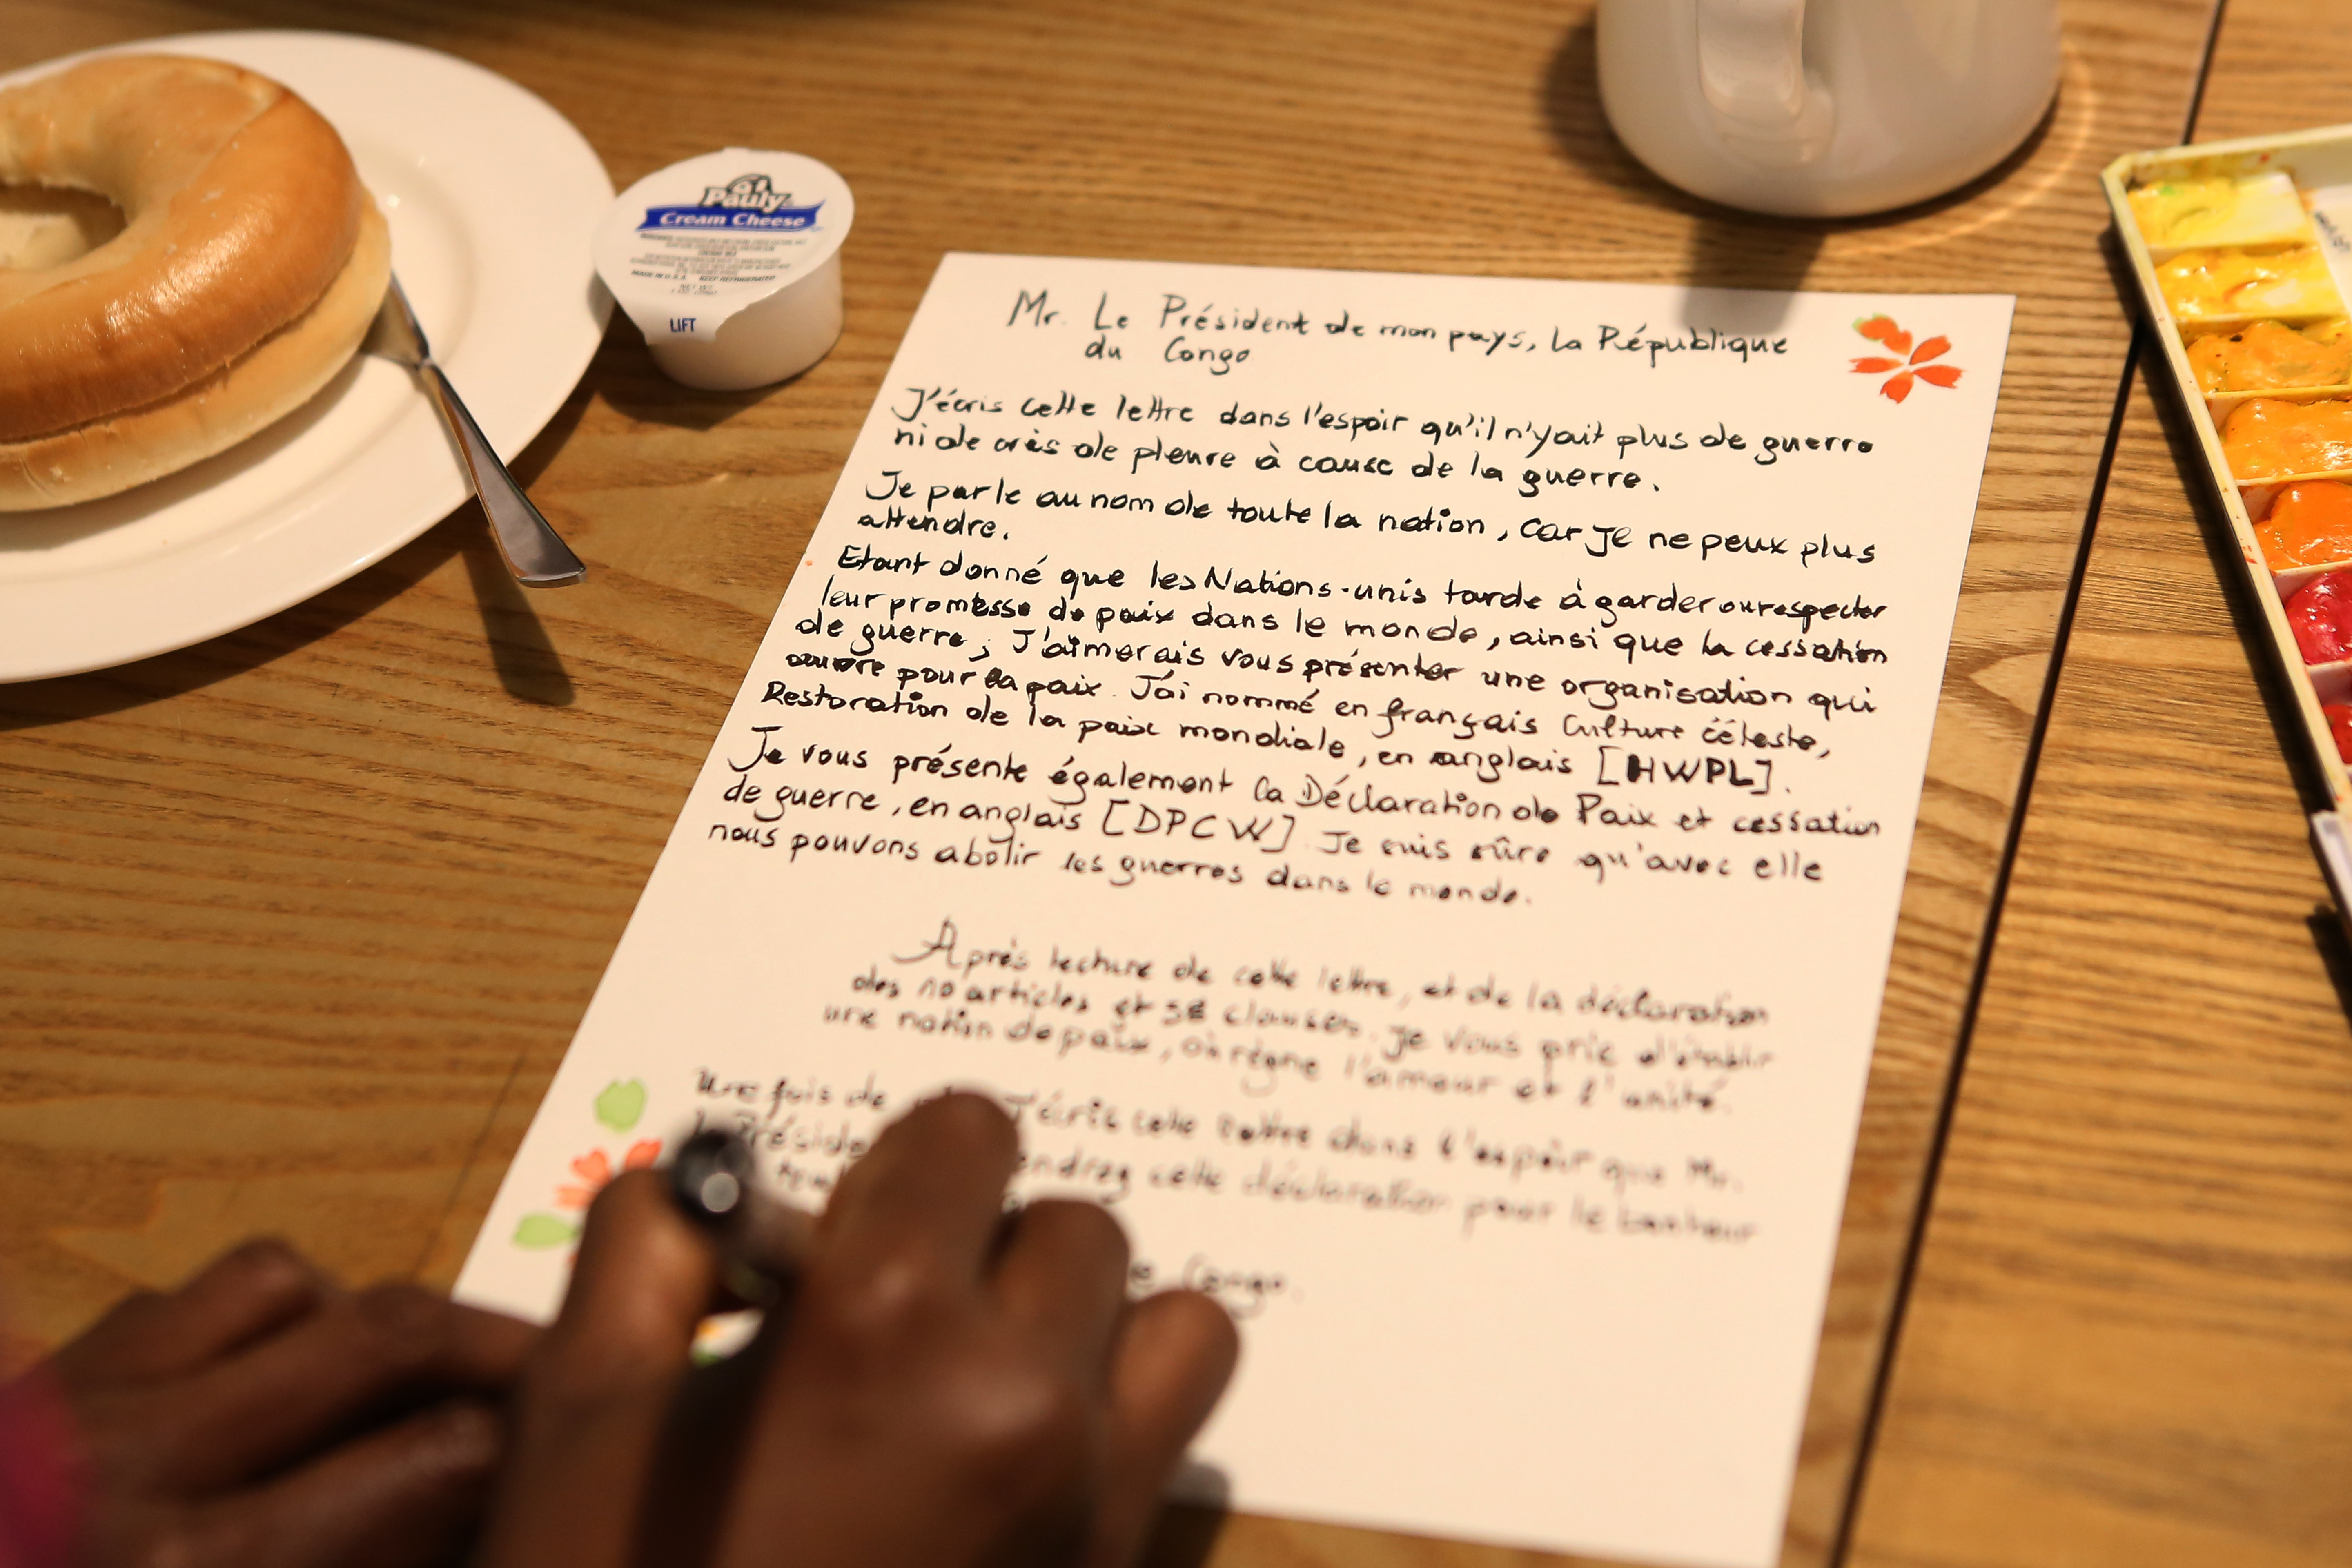 Pauly
Cream Cheese
MADE IN U.S.A. KEEP REFRIGERATED
LIFT
Mr. Le Président de mon pays, la République
du Congo
J'écris cette lettre dans l'espoir qu'il n'yait plus de guerre
ni de cris de pleure à cause de la guerre.
Je parle au nom de toute la nation, car je ne peux plus
attendre.
Etant donné que les Nations-unis tarde à garder ou respecter
leur promesse de paix dans le monde, ainsi que la cessation
de guerre; J'aimerais vous présenter une organisation qui
œuvre pour la paix. J'ai nommé en français Culture céleste,
Restoration de la paix mondiale, en anglais [HWPL].
Je vous présente également la Déclaration de Paix et cessation
de guerre, en anglais [DPCW]. Je suis sûre qu'avec elle
nous pouvons abolir les guerres dans le monde.
Après lecture de cette lettre, et de la déclaration
des 10 articles et 38 clauses. Je vous prie d'établir
une nation de paix, où règne l'amour et l'unité.
Une fois de J'écris cette lettre dans l'espoir que Mr.
le cette déclaration pour le bonheur
Congo.